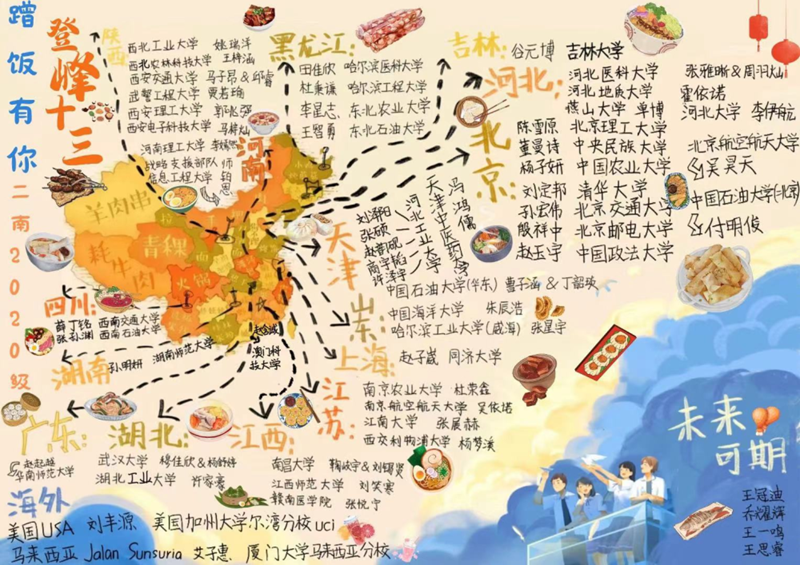 蹭饭有你
登峰十三
二南2020级
陕西
西北工业大学 姚瑞洋
西北农林科技大学 王梓涵
西安交通大学 马子昂&邱睿
武警工程大学 贾若瑜
西安理工大学 郭兆强
西安电子科技大学
河南
河南理工大学
战略支援部队
信息工程大学
黑龙江:
田佳欣 哈尔滨医科大学
杜秉谦 哈尔滨工程大学
李星志、东北农业大学
王智勇 东北石油大学
吉林: 谷元博 吉林大学
河北:
河北医科大学 张雅晰&周羽灿
河北地质大学 霍依诺
燕山大学 单博 河北大学 李伊航
北京:
陈雪原 北京理工大学
董曼诗 中央民族大学 北京航空航天大学
杨子妍 中国农业大学 吴昊天
刘定邦 清华大学 中国石油大学(北京)
孙宏伟 北京交通大学
殷祥中 北京邮电大学 付明俊
赵玉宇 中国政法大学
羊肉串
牦牛肉
青稞
火锅
天津
冯鸿儒
天津中医药大学
河北工业大学
刘泽阳
张硕
山东:
中国石油大学(华东) 曹子涵&丁韶瑛
中国海洋大学 朱辰浩
哈尔滨工业大学(威海) 张星宇
上海: 赵子崴 同济大学
江苏:
南京农业大学 杜荣鑫
南京航空航天大学 吴依诺
江南大学 张展赫
西交利物浦大学 杨梦溪
四川:
薛丁铭 西南交通大学
张孙渊 西南石油大学
湖南
孙明妍 湖南师范大学
澳门科
技大学
广东:
赵起越
华南师范大学
湖北:
武汉大学 穆佳欣&杨舒婷
湖北工业大学 许容睿
江西:
南昌大学 鞠岐宇&刘锡炎
江西师范大学 刘笑寒
赣南医学院 张悦宁
海外
美国USA 刘丰源 美国加州大学尔湾分校uci
马来西亚 Jalan Sunsuria 艾子惠 厦门大学马来西亚分校
未来
可期
王冠迪
乔耀辉
王一鸣
王思睿